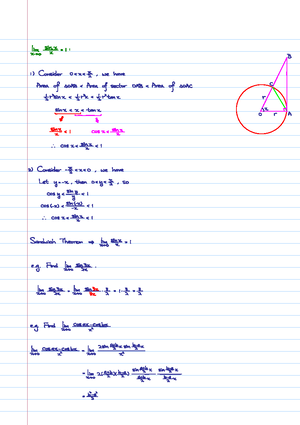 lim x→0 sinx/x = 1 :
1) Consider 0<x<π/2 , we have
Area of ΔOAB < Area of sector OAB < Area of ΔOAC
½r²sinx < ½r²x < ½r²tanx
sinx < x < tanx
sinx/x < 1    cosx < sinx/x
∴ cosx < sinx/x < 1
2) Consider -π/2<x<0 , we have
Let y=-x, then 0<y<π/2 , so
cosy < siny/y < 1
cos(-x) < sin(-x)/-x < 1
∴ cosx < sinx/x < 1
Sandwich Theorem ⇒ lim x→0 sinx/x = 1
e.g. Find lim x→0 sin3x/2x .
lim x→0 sin3x/2x = lim x→0 sin3x/3x · 3/2 = 1 · 3/2 = 3/2
e.g. Find lim x→0 cosax-cosbx/x²
lim x→0 cosax-cosbx/x² = lim x→0
= lim x→0
= b²-a²/2
B
C
r
O
x
r
A